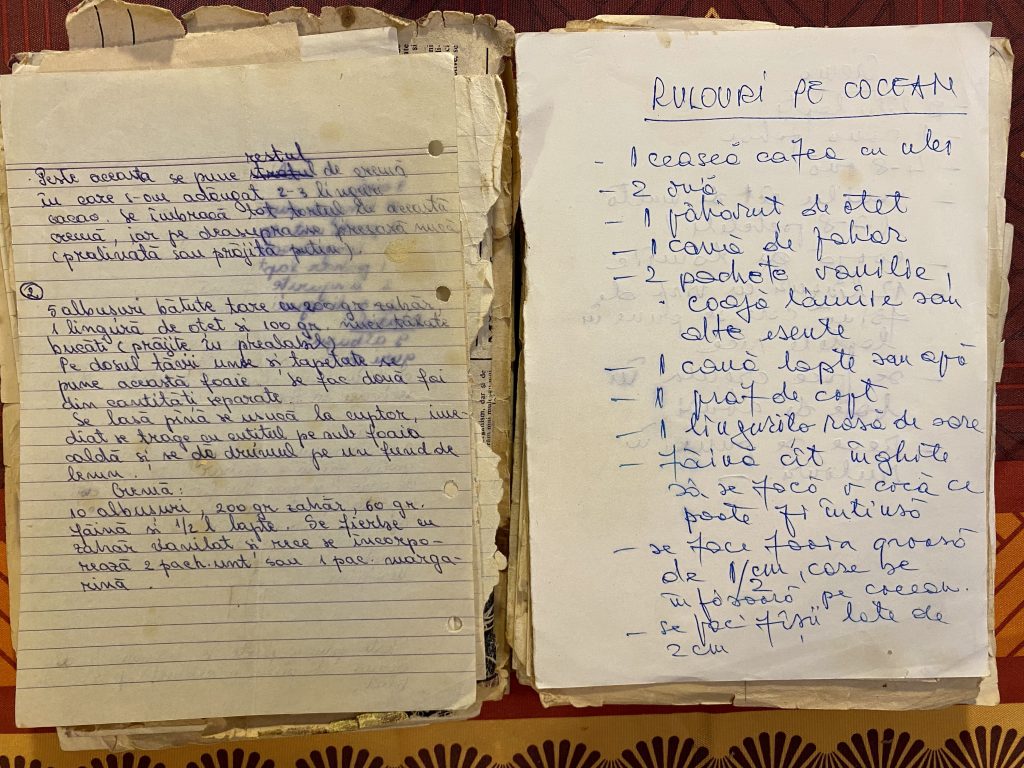 restul
Peste aceasta se pune stratul de cremă
în care s-au adăugat 2-3 linguri
cacao. Se îmbracă tot tortul cu această
cremă, iar pe deasupra se presară nucă
(pralinată sau prăjită puțin).
②
5 albușuri bătute tare cu 200 gr zahăr
1 lingură de oțet și 100 gr. nuci tăiate
bucăți (prăjite în prealabil)
Pe dosul tăvii unse și tapetate se
pune această foaie. Se fac două foi
din cantități separate.
Se lasă pînă se usucă la cuptor, ime-
diat se trage cu cuțitul pe sub foaia
caldă și se dă drumul pe un fund de
lemn.
Cremă:
10 albușuri, 200 gr zahăr, 60 gr.
făină și 1/2 l lapte. Se fierbe cu
zahăr vanilat și rece se încorpo-
rează 2 pach. unt sau 1 pac. marga-
rină.
RULOURI PE COCEAN
- 1 ceașcă cafea cu ulei
- 2 ouă
- 1 păhăruț de oțet
- 1 cană de zahăr
- 2 pachete vanilie,
coajă lămîie sau
alte esențe
- 1 cană lapte sau apă
- 1 praf de copt
- 1 linguriță rasă de sare
- făină cît înghite
să se facă o cocă ce
poate fi întinsă
- se face foaia groasă
de 1/2 cm, care se
înfășoară pe cocean.
- se faci fîșii late de
2 cm